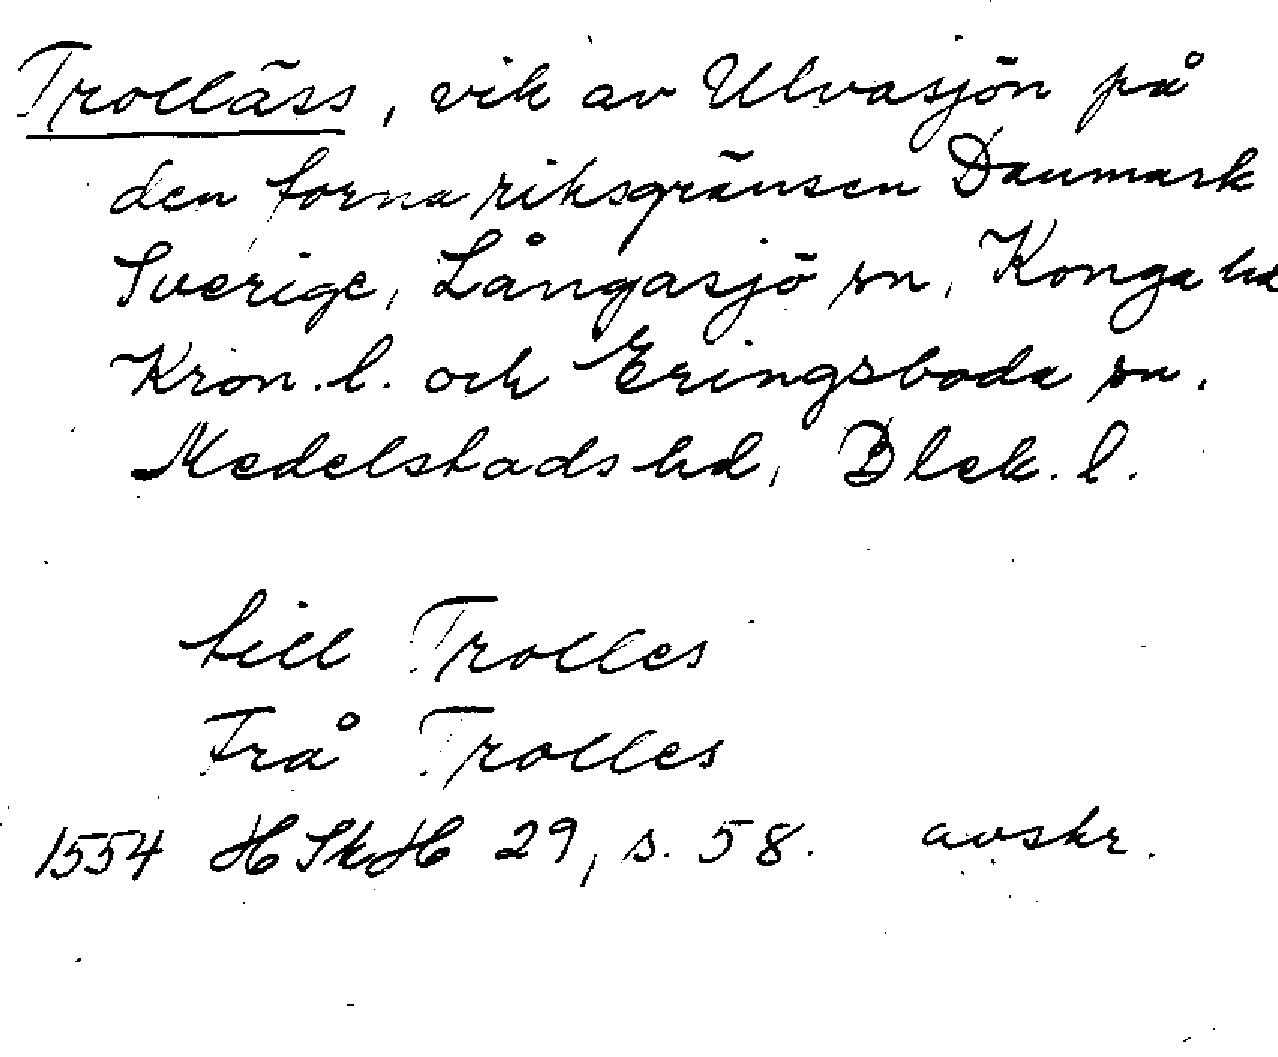 Trolläss, vik av Ulvasjön på
den forna riksgränsen Danmark
Sverige, Långasjö sn, Konga hd
Kron. l. och Eringsboda sn.
Medelstads hd, Blek. l.
till Trolles
Frå Trolles
1554 HSkH 29, s. 58. avskr.